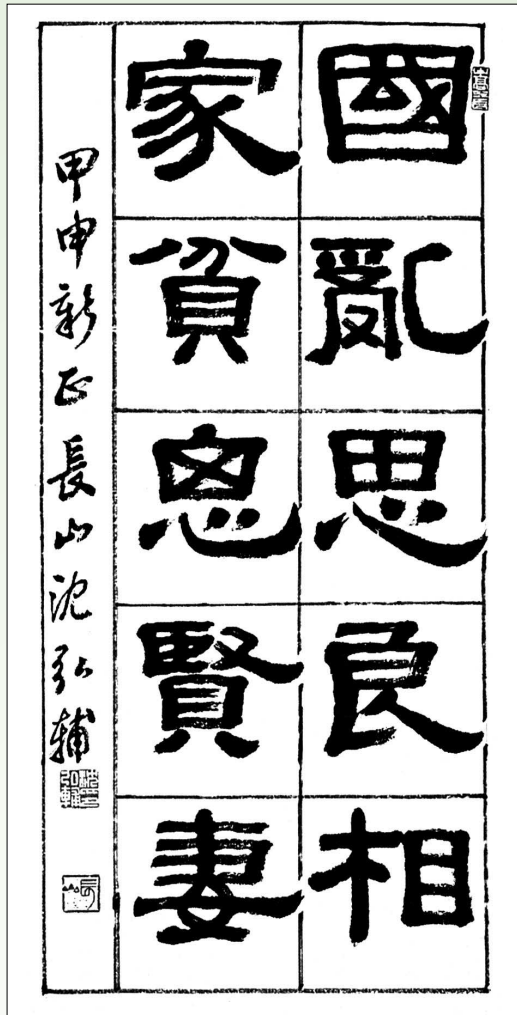 國亂思良相
家貧思賢妻
甲申新正 長山沈弘輔